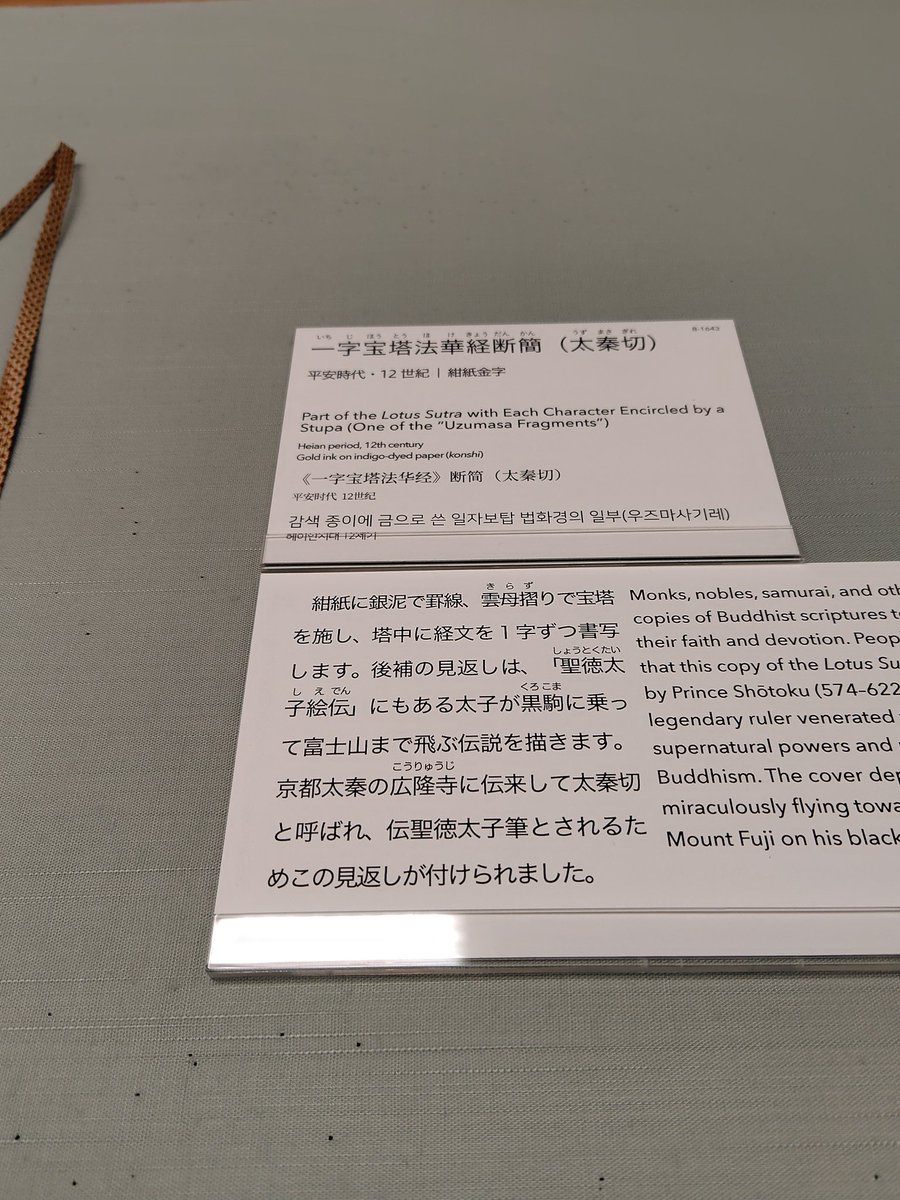 いちじほうとうほけきょうだんかん うずまさぎれ
一字宝塔法華経断簡（太秦切）
B-1643
平安時代・12 世紀 | 紺紙金字
Part of the Lotus Sutra with Each Character Encircled by a
Stupa (One of the “Uzumasa Fragments”)
Heian period, 12th century
Gold ink on indigo-dyed paper (konshi)
《一字宝塔法华经》断简（太秦切）
平安时代 12世纪
감색 종이에 금으로 쓴 일자보탑 법화경의 일부(우즈마사기레)
헤이안시대 12세기
きらず
紺紙に銀泥で罫線、雲母摺りで宝塔
を施し、塔中に経文を１字ずつ書写
しょうとくたい
します。後補の見返しは、「聖徳太
しえでん くろこま
子絵伝」にもある太子が黒駒に乗っ
て富士山まで飛ぶ伝説を描きます。
こうりゅうじ
京都太秦の広隆寺に伝来して太秦切
と呼ばれ、伝聖徳太子筆とされるた
めこの見返しが付けられました。
Monks, nobles, samurai, and
copies of Buddhist scriptures
their faith and devotion.
that this copy of the Lotus
by Prince Shōtoku (574–622
legendary ruler venerated
supernatural powers and
Buddhism. The cover
miraculously flying
Mount Fuji on his black